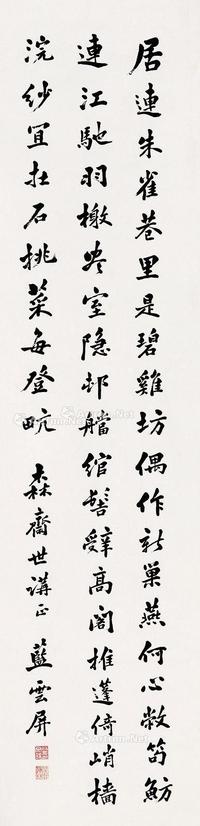 居連朱雀巷里是碧雞坊偶作新巢燕何心敝笱魴
連江馳羽檄盡室隱邨艡綰髻辭高閣推蓬倚峭檣
浣紗宜在石挑菜每登 森齋世講正 藍雲屏